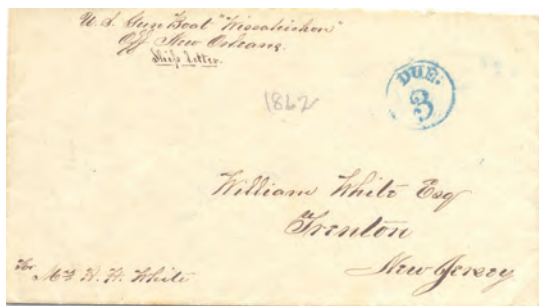 U.S. Gun Boat "Wissahickon"
Off New Orleans.
Ship Letter.
1862
DUE.
3
William White Esq
Trenton
New Jersey
For
Mrs H. H. White